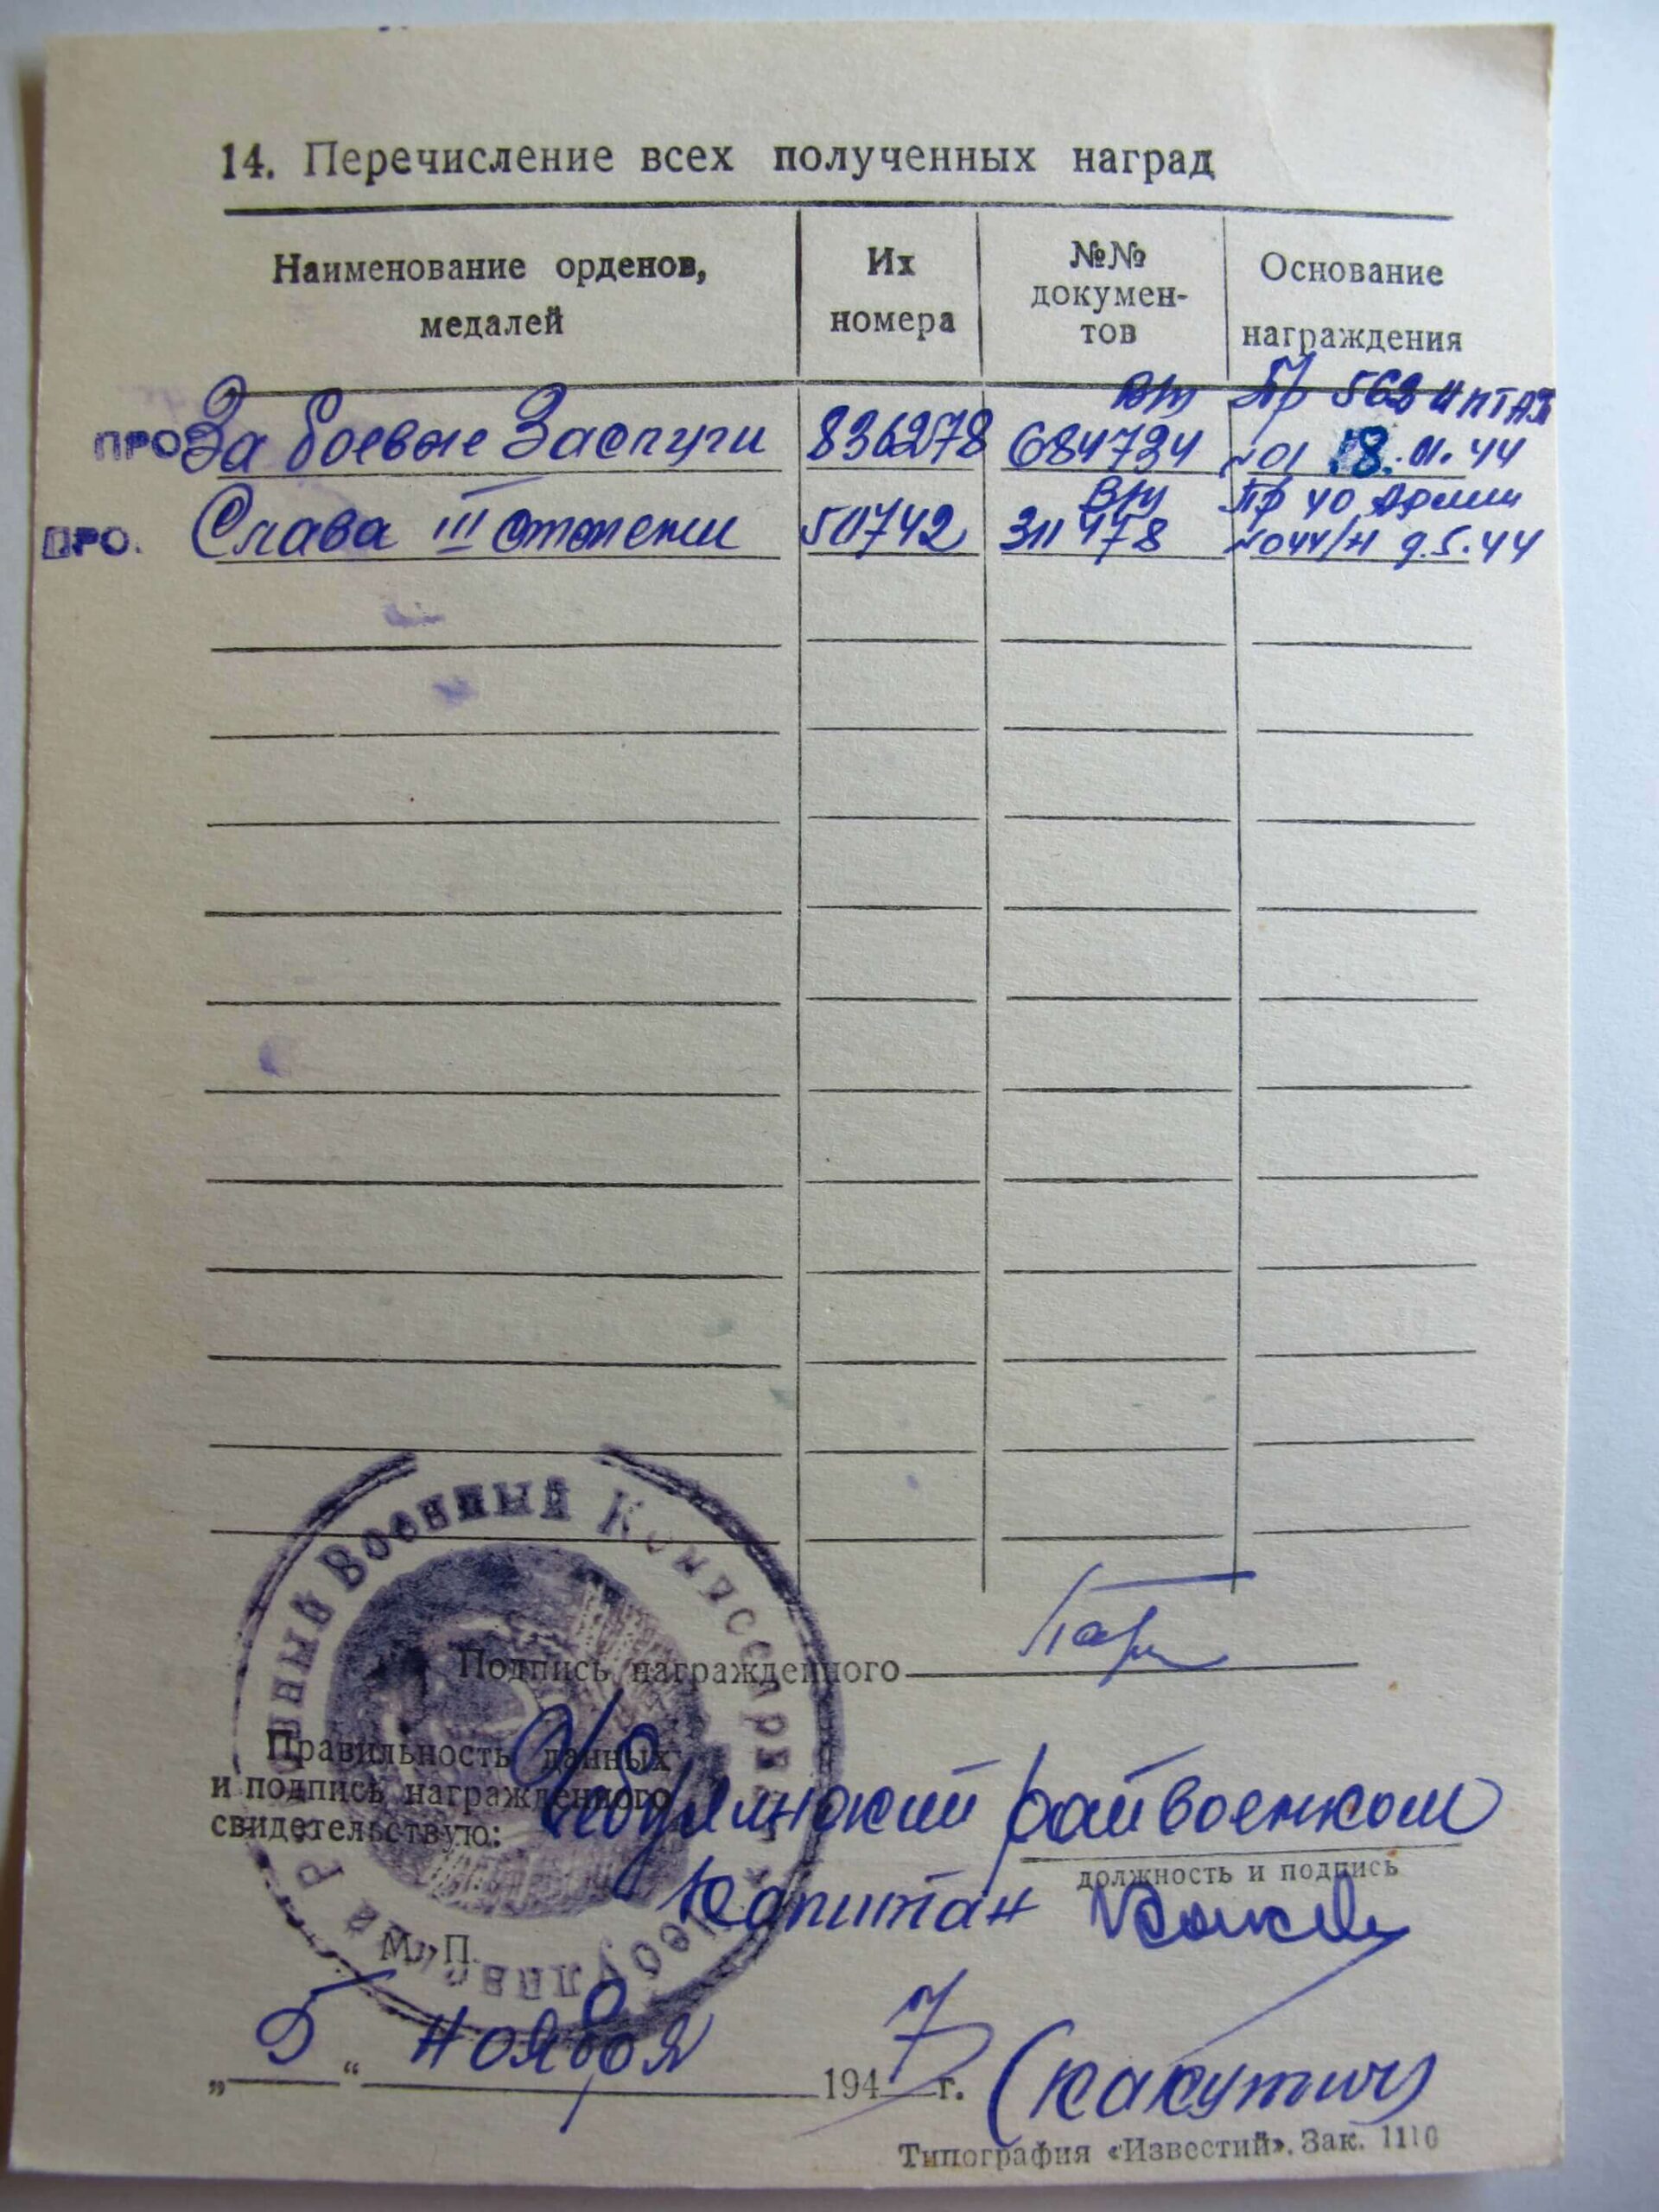 14. Перечисление всех полученных наград
Наименование орденов, медалей
Их номера
№№ документов
Основание награждения
ПРО За боевые Заслуги 836278 684734 Пр 562 ИПТАП №01 18.01.44
ПРО. Слава III степени 50742 311478 Пр 40 Армии №044/Н 9.5.44
Подпись награжденного
Правильность данных
и подпись награжденного
свидетельствую:
райвоенком
должность и подпись
Капитан
М. П.
„5“ ноября 1947 г. (Какутич)
Типография «Известий». Зак. 1110
Военный Комиссариат